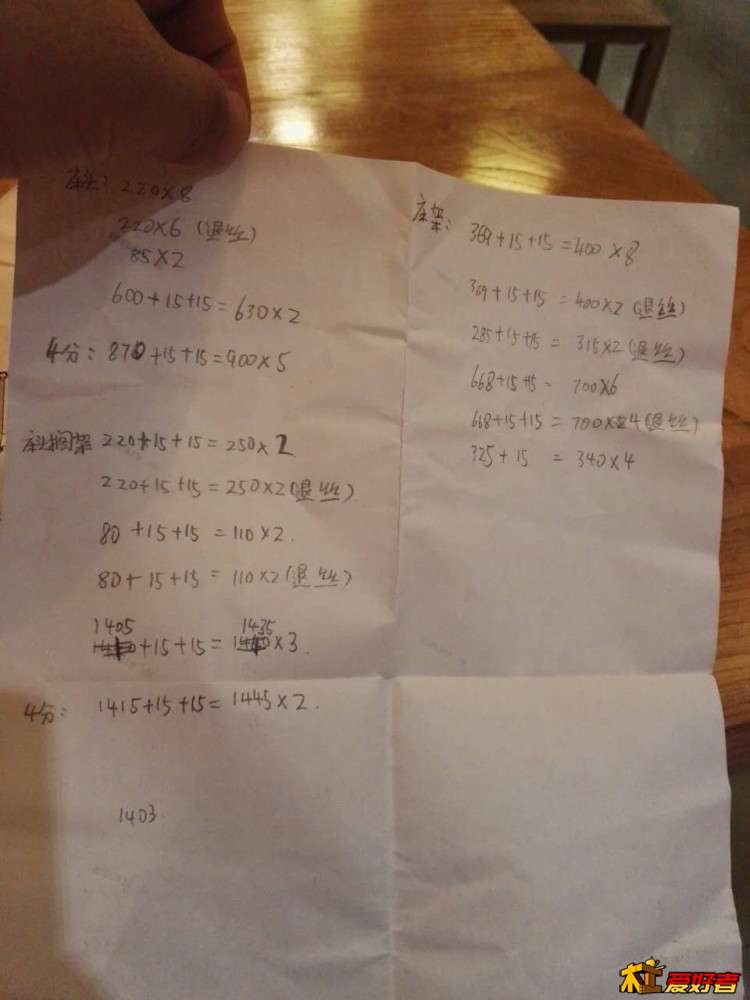 床头: 220×8
220×6 (退丝)
85×2
600+15+15=630×2
4分: 870+15+15=900×5
床头搁架 220+15+15=250×2
220+15+15=250×2(退丝)
80+15+15=110×2.
80+15+15=110×2(退丝)
1405 1435
+15+15= ×3.
4分: 1415+15+15=1445×2.
1403.
床架: 369+15+15=400×8
369+15+15=400×2(退丝)
285+15+15=315×2(退丝)
668+15+15=700×6
668+15+15=700×4(退丝)
325+15=340×4
爱好者